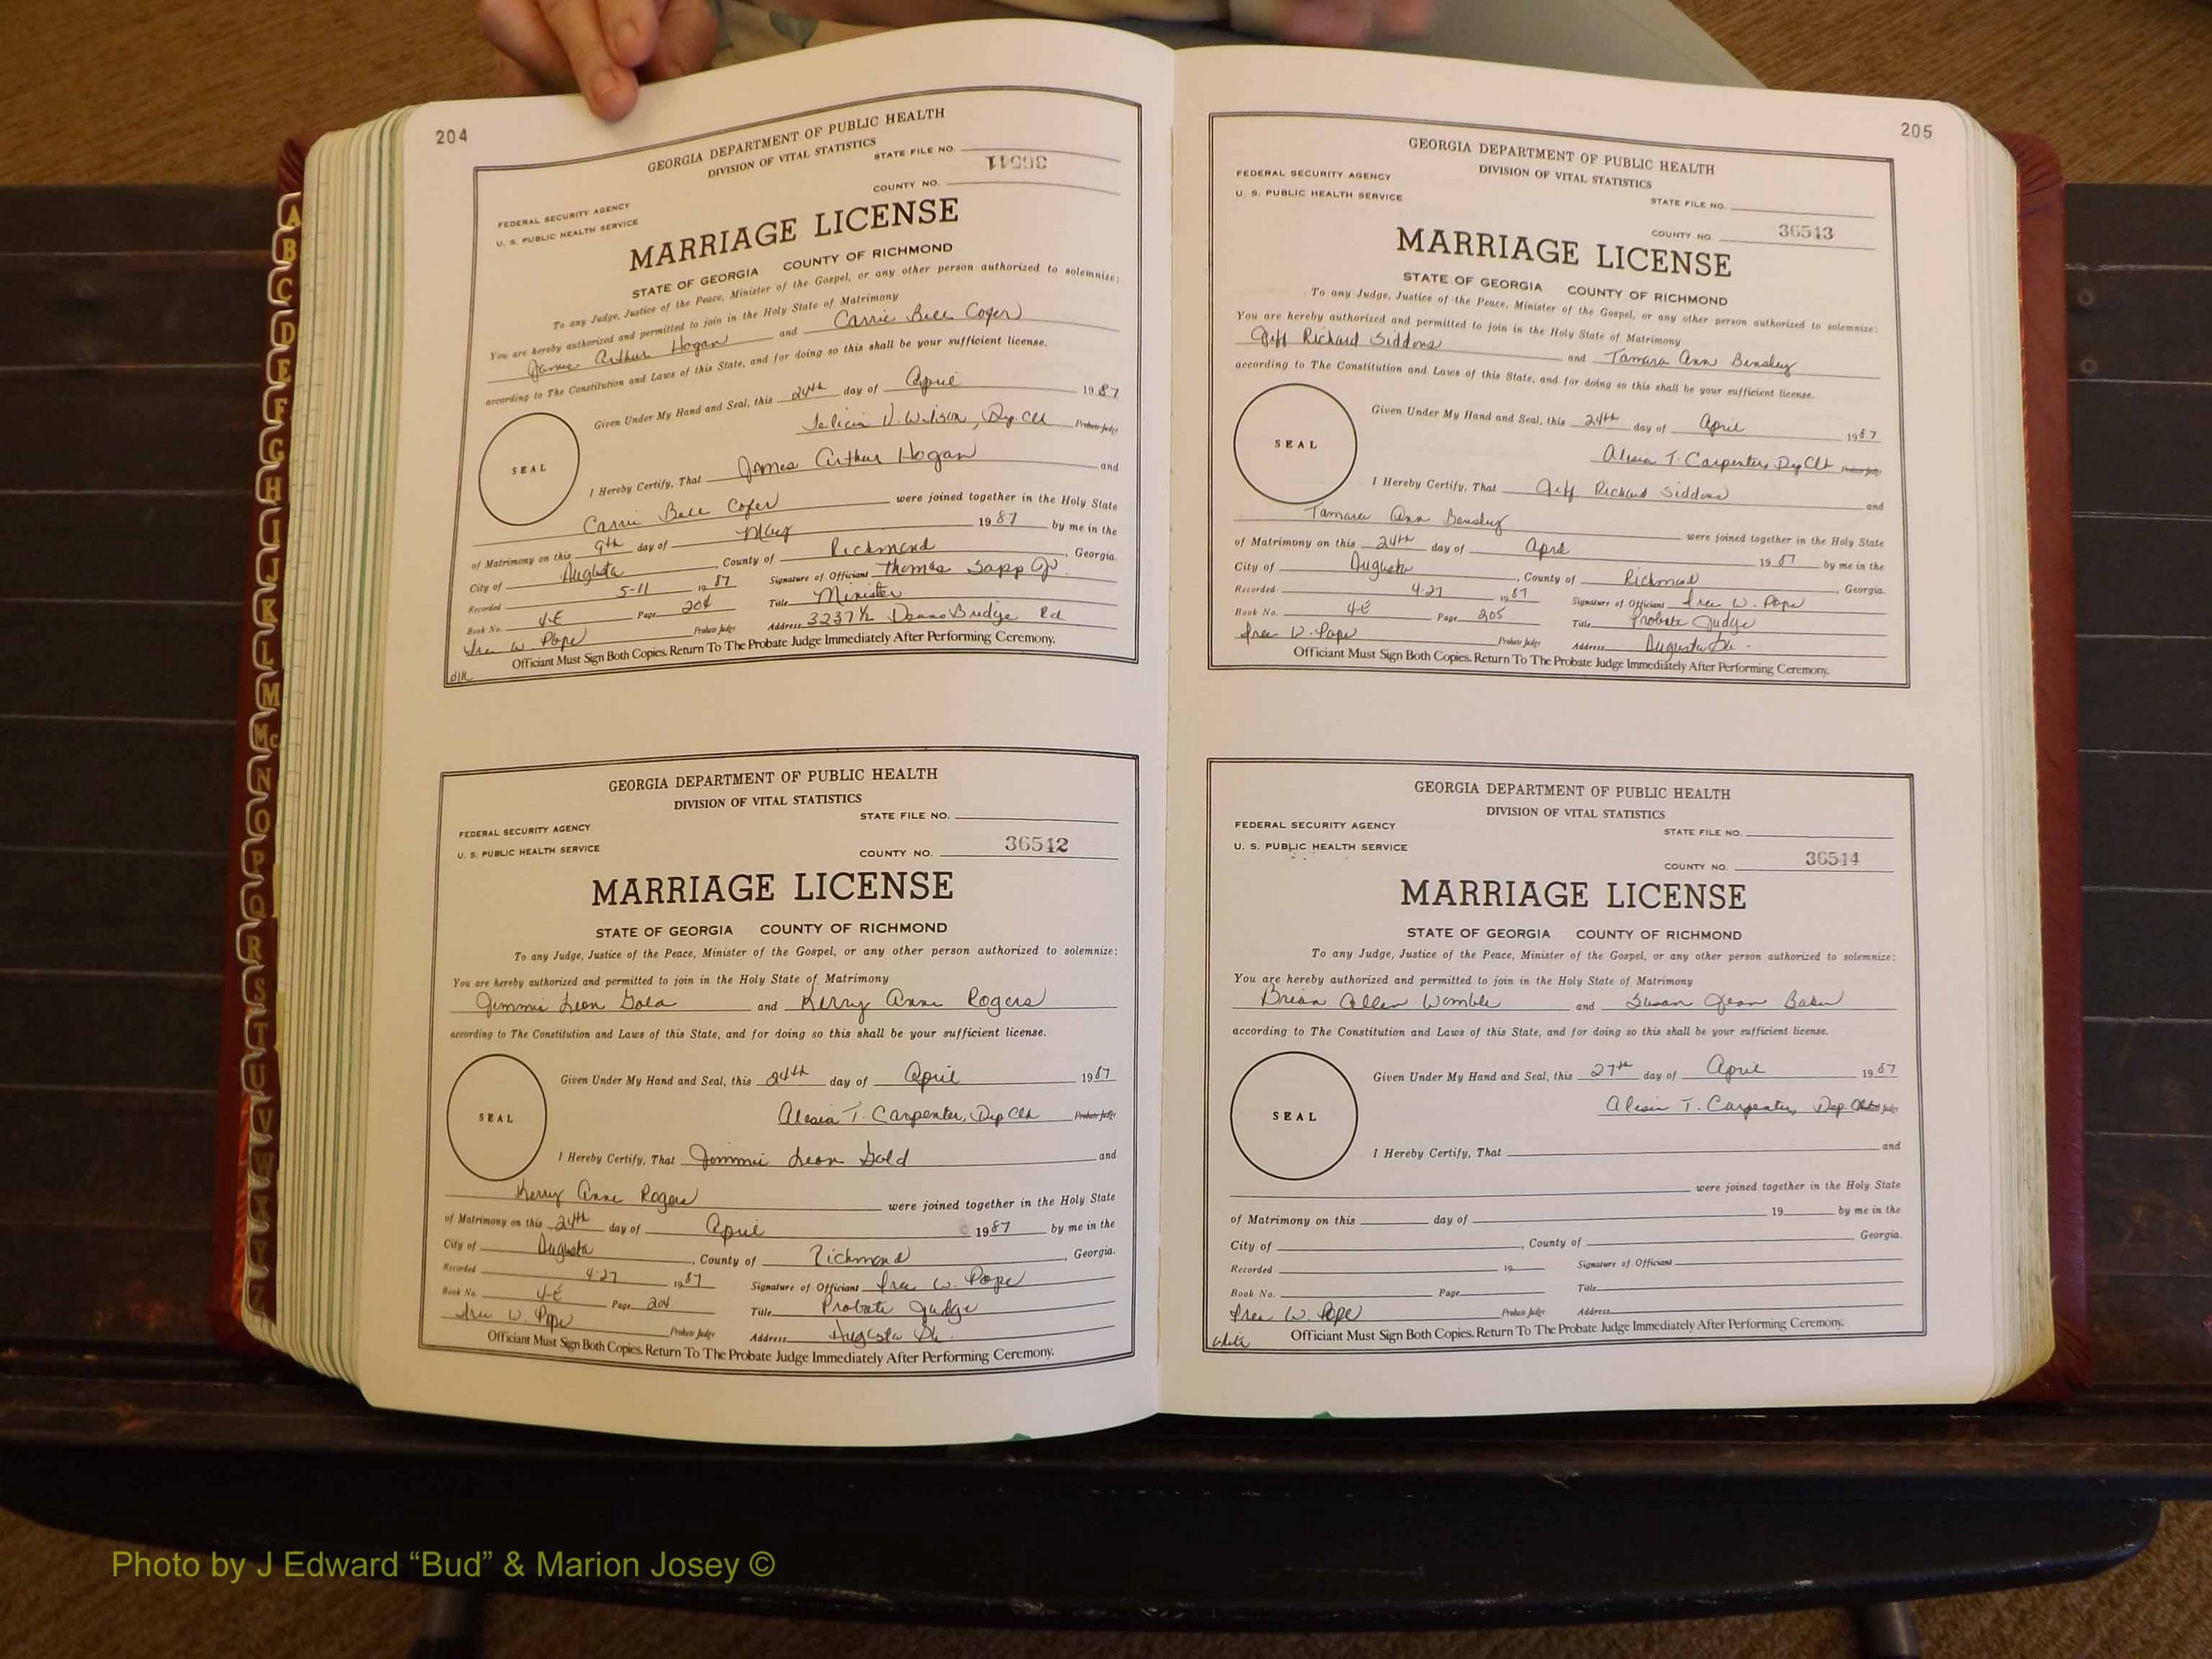 204
GEORGIA DEPARTMENT OF PUBLIC HEALTH
DIVISION OF VITAL STATISTICS
STATE FILE NO. 36511
COUNTY NO.
FEDERAL SECURITY AGENCY
U. S. PUBLIC HEALTH SERVICE
MARRIAGE LICENSE
STATE OF GEORGIA COUNTY OF RICHMOND
To any Judge, Justice of the Peace, Minister of the Gospel, or any other person authorized to solemnize:
You are hereby authorized and permitted to join in the Holy State of Matrimony
James Arthur Hogan and Carrie Bell Cofer
according to The Constitution and Laws of this State, and for doing so this shall be your sufficient license.
Given Under My Hand and Seal, this 24th day of April 1987
Felicia V. Wilson, Dep. Clk Probate Judge
SEAL
I Hereby Certify, That James Arthur Hogan and
Carrie Bell Cofer were joined together in the Holy State
of Matrimony on this 9th day of May 1987 by me in the
City of Augusta, County of Richmond, Georgia.
Recorded 5-11 1987 Signature of Officiant Thomas Sapp Jr.
Book No. 4-E Page 204 Title Minister
W. Pope Probate Judge Address 3237½ Deans Bridge Rd
Officiant Must Sign Both Copies. Return To The Probate Judge Immediately After Performing Ceremony.
GEORGIA DEPARTMENT OF PUBLIC HEALTH
DIVISION OF VITAL STATISTICS
STATE FILE NO.
FEDERAL SECURITY AGENCY
U. S. PUBLIC HEALTH SERVICE
COUNTY NO. 36512
MARRIAGE LICENSE
STATE OF GEORGIA COUNTY OF RICHMOND
To any Judge, Justice of the Peace, Minister of the Gospel, or any other person authorized to solemnize:
You are hereby authorized and permitted to join in the Holy State of Matrimony
Jimmie Leon Gold and Kerry Anne Rogers
according to The Constitution and Laws of this State, and for doing so this shall be your sufficient license.
Given Under My Hand and Seal, this 24th day of April 1987
Alesia T. Carpenter, Dep Clk Probate Judge
SEAL
I Hereby Certify, That Jimmie Leon Gold and
Kerry Anne Rogers were joined together in the Holy State
of Matrimony on this 24th day of April 1987 by me in the
City of Augusta, County of Richmond, Georgia.
Recorded 4-27 1987 Signature of Officiant W. Pope
Book No. 4-E Page 204 Title Probate Judge
W. Pope Probate Judge Address Augusta Ga.
Officiant Must Sign Both Copies. Return To The Probate Judge Immediately After Performing Ceremony.
205
GEORGIA DEPARTMENT OF PUBLIC HEALTH
DIVISION OF VITAL STATISTICS
FEDERAL SECURITY AGENCY
U. S. PUBLIC HEALTH SERVICE
STATE FILE NO.
COUNTY NO. 36513
MARRIAGE LICENSE
STATE OF GEORGIA COUNTY OF RICHMOND
To any Judge, Justice of the Peace, Minister of the Gospel, or any other person authorized to solemnize:
You are hereby authorized and permitted to join in the Holy State of Matrimony
Jeff Richard Siddons and Tamara Ann Bensley
according to The Constitution and Laws of this State, and for doing so this shall be your sufficient license.
Given Under My Hand and Seal, this 24th day of April 1987
Alesia T. Carpenter, Dep Clk Probate Judge
SEAL
I Hereby Certify, That Jeff Richard Siddons and
Tamara Ann Bensley were joined together in the Holy State
of Matrimony on this 24th day of April 1987 by me in the
City of Augusta, County of Richmond, Georgia.
Recorded 4-27 1987 Signature of Officiant W. Pope
Book No. 4-E Page 205 Title Probate Judge
W. Pope Probate Judge Address Augusta Ga.
Officiant Must Sign Both Copies. Return To The Probate Judge Immediately After Performing Ceremony.
GEORGIA DEPARTMENT OF PUBLIC HEALTH
DIVISION OF VITAL STATISTICS
FEDERAL SECURITY AGENCY
STATE FILE NO.
U. S. PUBLIC HEALTH SERVICE
COUNTY NO. 36514
MARRIAGE LICENSE
STATE OF GEORGIA COUNTY OF RICHMOND
To any Judge, Justice of the Peace, Minister of the Gospel, or any other person authorized to solemnize:
You are hereby authorized and permitted to join in the Holy State of Matrimony
Brian Allen Womble and Susan Jean Baker
according to The Constitution and Laws of this State, and for doing so this shall be your sufficient license.
Given Under My Hand and Seal, this 27th day of April 1987
Alesia T. Carpenter, Dep. Clk Probate Judge
SEAL
I Hereby Certify, That and
were joined together in the Holy State
of Matrimony on this day of 19 by me in the
City of , County of , Georgia.
Recorded 19 Signature of Officiant
Book No. Page Title
W. Pope Probate Judge Address
Officiant Must Sign Both Copies. Return To The Probate Judge Immediately After Performing Ceremony.
A
B
C
D
E
F
G
H
I
J
K
L
M
Mc
N
O
P
Q
R
S
T
U
V
W
X
Y
Z
Photo by J Edward “Bud” & Marion Josey ©